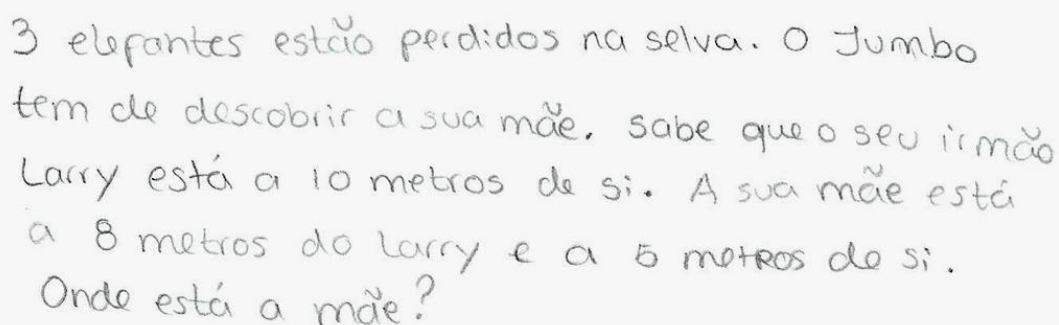 3 elefantes estão perdidos na selva. O Jumbo
tem de descobrir a sua mãe. Sabe que o seu irmão
Larry está a 10 metros de si. A sua mãe está
a 8 metros do Larry e a 5 metros de si.
Onde está a mãe?